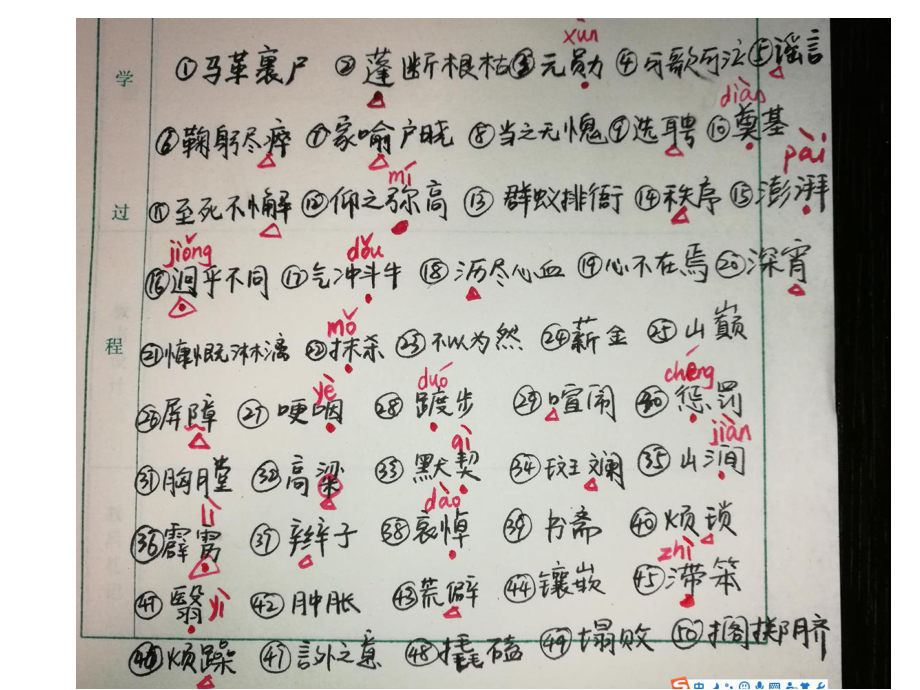 xūn
学 ①马革裹尸 ②蓬断根枯 ③元勋 ④可歌可泣 ⑤谣言
diàn
⑥鞠躬尽瘁 ⑦家喻户晓 ⑧当之无愧 ⑨选聘 ⑩奠基
mí pài
过 ⑪至死不懈 ⑫仰之弥高 ⑬群蚁排衙 ⑭秩序 ⑮澎湃
jiǒng dǒu
⑯迥乎不同 ⑰气冲斗牛 ⑱沥尽心血 ⑲心不在焉 ⑳深宵
mǒ
程 ㉑慷慨淋漓 ㉒抹杀 ㉓不以为然 ㉔薪金 ㉕山巅
yè duó chéng
㉖屏障 ㉗哽咽 ㉘踱步 ㉙喧闹 ㉚惩罚
qì jiàn
㉛胸膛 ㉜高粱 ㉝默契 ㉞斑斓 ㉟山涧
lì dào
㊱霹雳 ㊲辫子 ㊳哀悼 ㊴书斋 ㊵烦琐
zhì
㊶翳 yì ㊷肿胀 ㊸荒僻 ㊹镶嵌 ㊺滞笨
㊻烦躁 ㊼言外之意 ㊽ ㊾塌败 ㊿